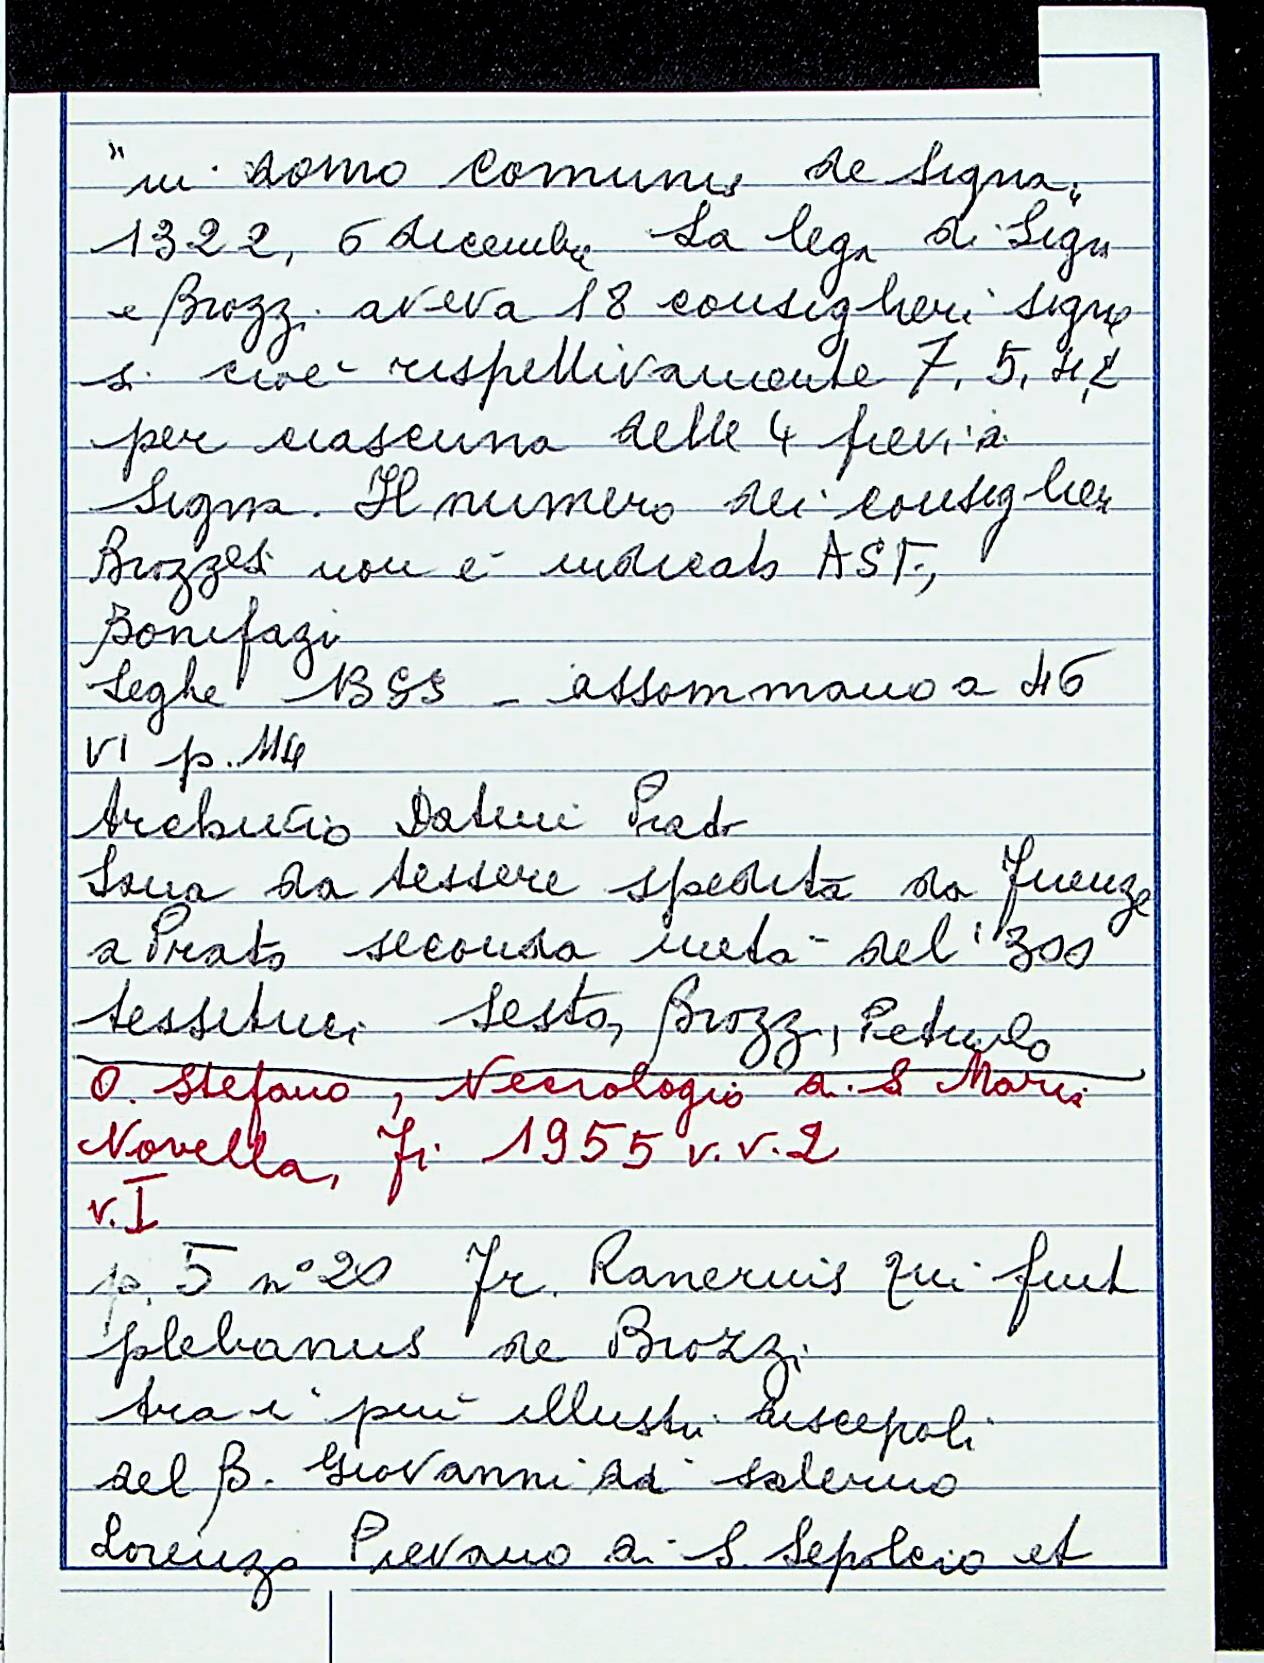 "in domo comunis de Signa"
1322, 6 dicembre La lega di Signa
e Brozzi aveva 18 consiglieri signe
si cioè rispettivamente 7, 5, 4, 2
per ciascuna delle 4 pievi di
Signa. Il numero dei consiglieri
Brozzesi non è indicato ASF.,
Bonifazi
Leghe - assommano a 46
VI p. 114
Archivio Datini Prato
Lana da tessere spedita da Firenze
a Prato seconda metà del '300
tessitrici Sesto, Brozzi, Petriolo
O. Stefano, Necrologio di S Maria
Novella, Fi 1955 v. v. 2
v. I
p. 5 n° 20 Fr. Ranerius qui fuit
plebanus de Brozzi
tra i più illustri discepoli
del B. Giovanni da Salerno
Lorenzo Pievano di S. Sepolcro et